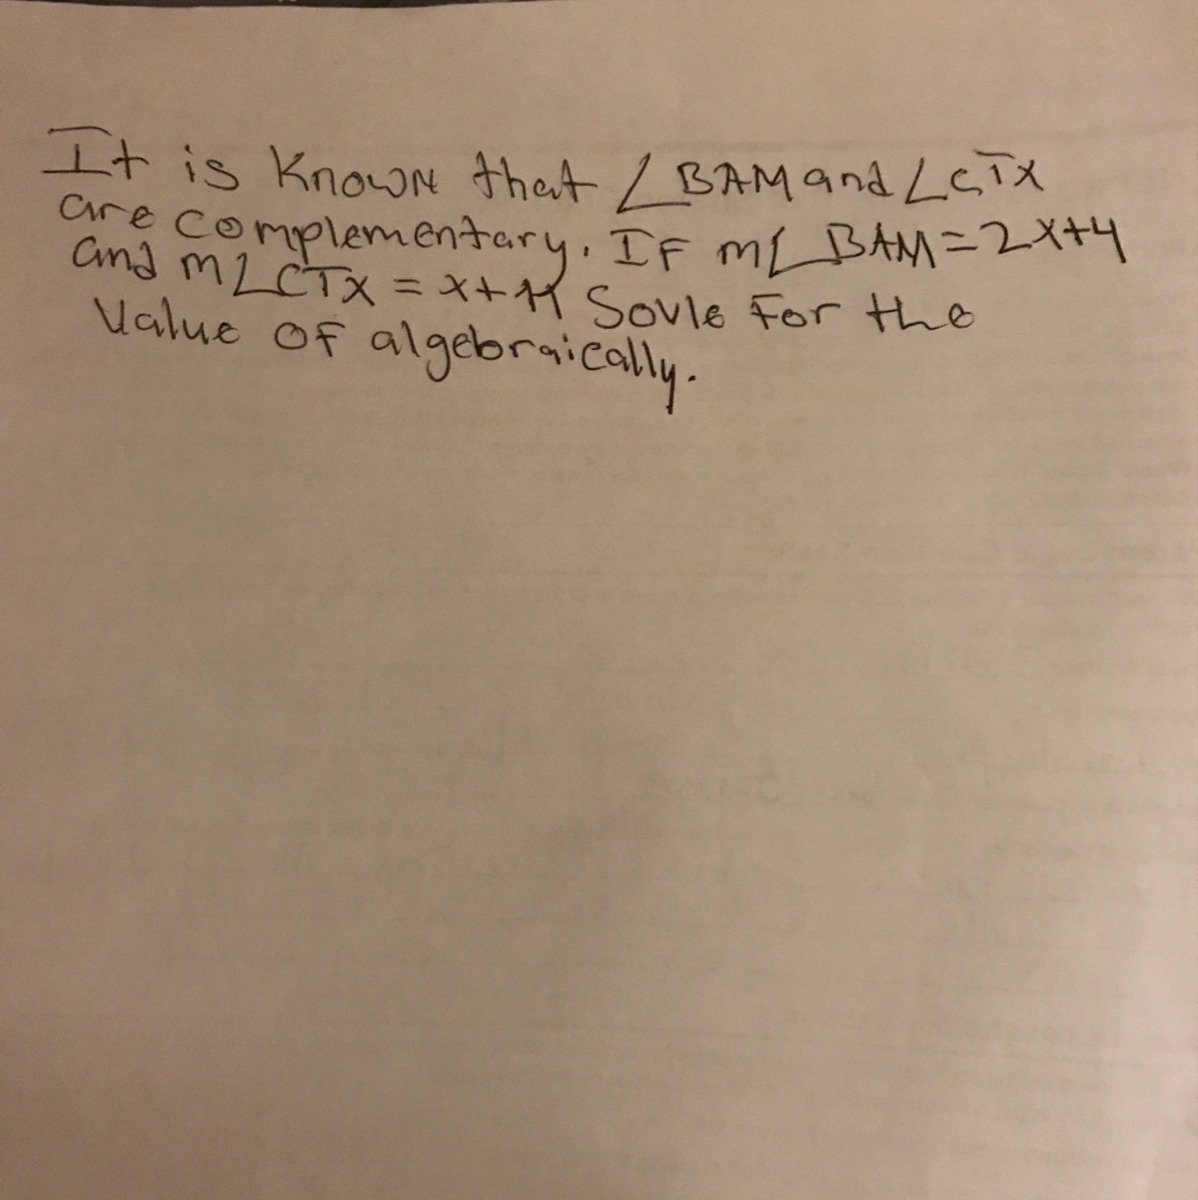 It is Known that ∠BAM and ∠CTX
are complementary. IF m∠BAM=2x+4
and m∠CTX = x+11 Sovle For the
Value OF algebraically.